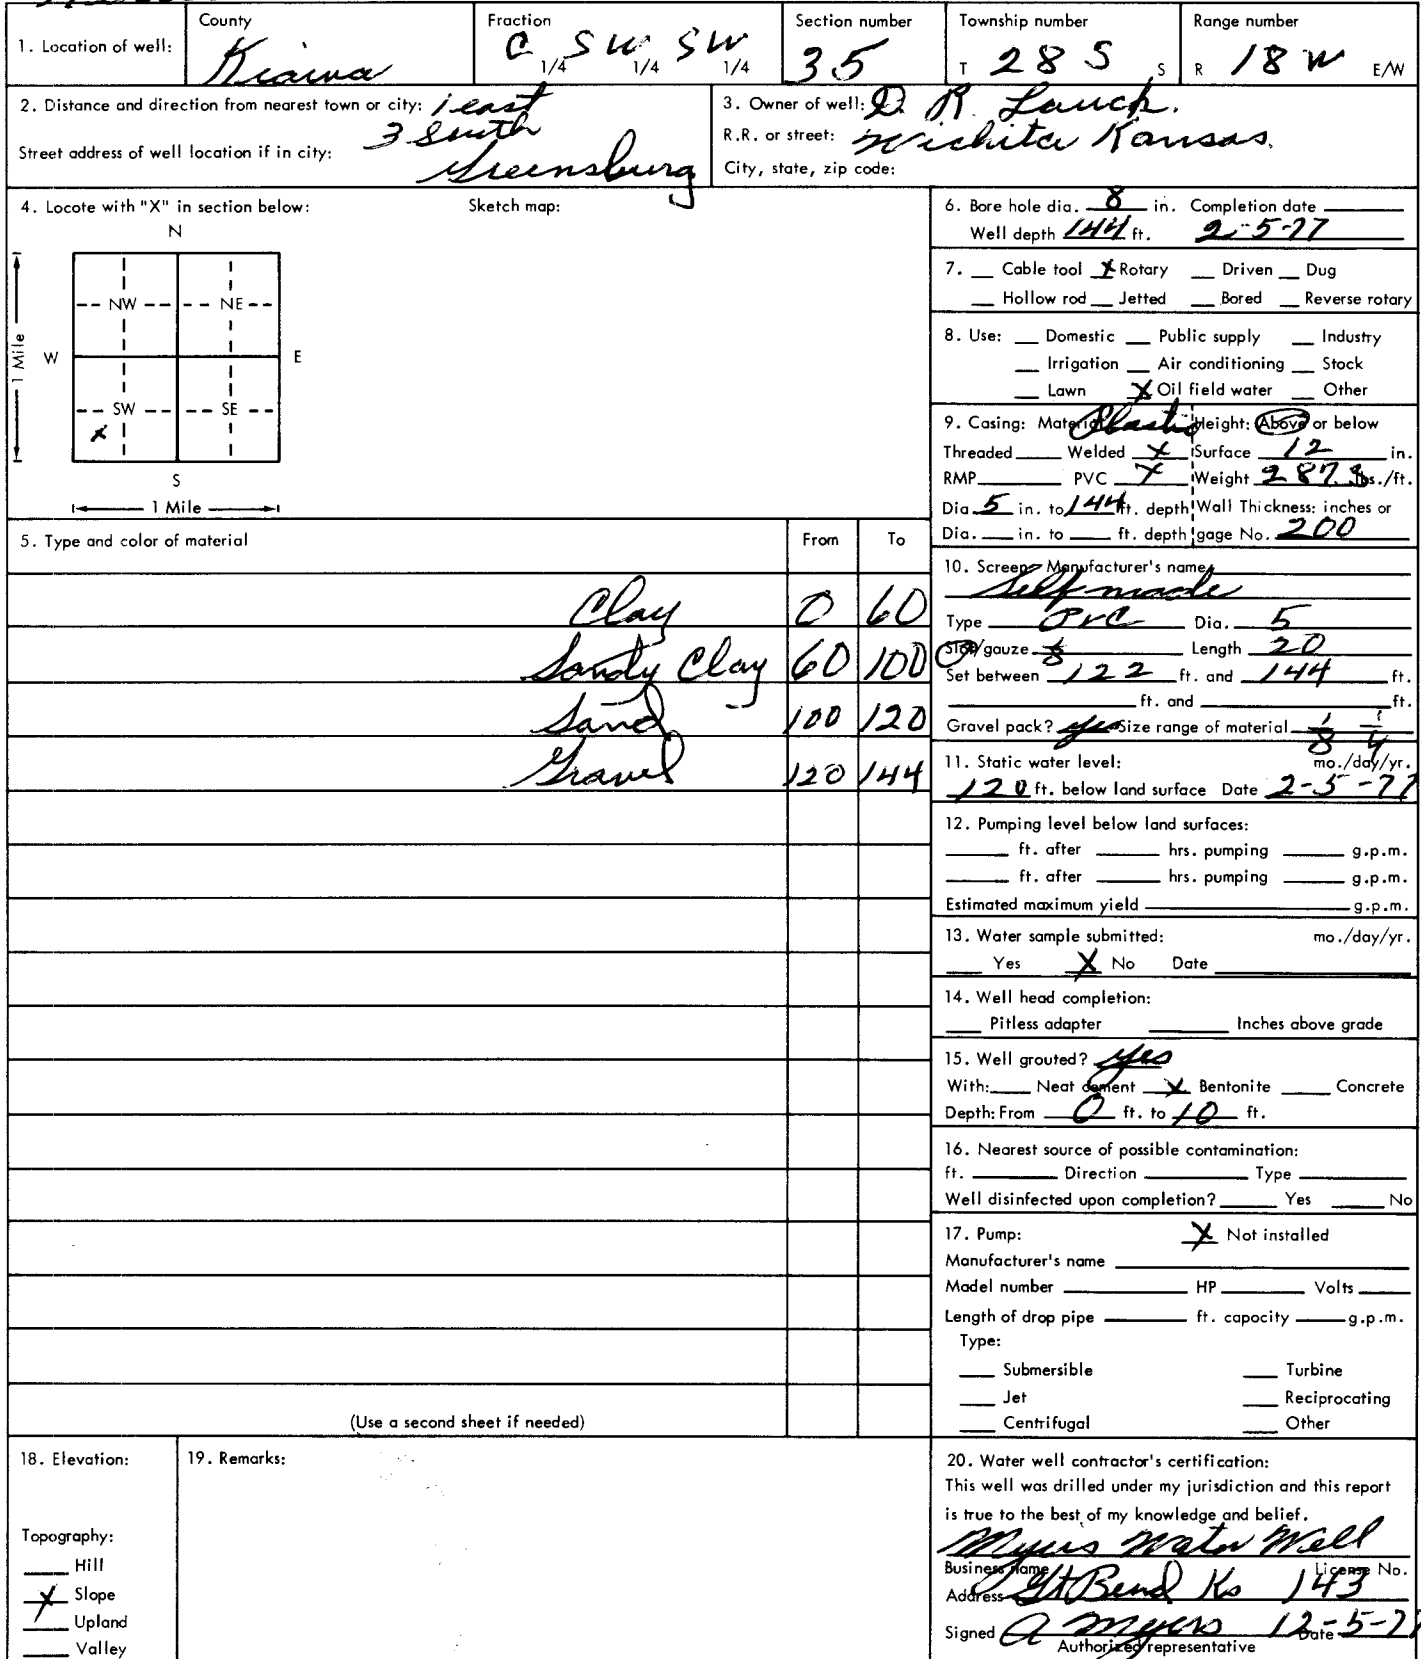 County Fraction Section number Township number Range number
1. Location of well: Kiowa C 1/4 SW 1/4 SW 1/4 35 T 28 S S R 18 W E/W
2. Distance and direction from nearest town or city: 1 east
3 South
Street address of well location if in city:
Greensburg
3. Owner of well: D. R. Lauck.
R.R. or street: Wichita Kansas.
City, state, zip code:
4. Locate with "X" in section below: Sketch map:
N
NW NE
W E
1 Mile
SW SE
X
S
1 Mile
5. Type and color of material From To
Clay 0 60
Sandy Clay 60 100
Sand 100 120
Gravel 120 144
(Use a second sheet if needed)
6. Bore hole dia. 8 in. Completion date
Well depth 144 ft. 2-5-77
7. __ Cable tool X Rotary __ Driven __ Dug
__ Hollow rod __ Jetted __ Bored __ Reverse rotary
8. Use: __ Domestic __ Public supply __ Industry
__ Irrigation __ Air conditioning __ Stock
__ Lawn X Oil field water __ Other
9. Casing: Material Plastic Height: Above or below
Threaded ____ Welded X Surface 12 in.
RMP ____ PVC X Weight 287 lbs./ft.
Dia. 5 in. to 144 ft. depth Wall Thickness: inches or
Dia. __ in. to __ ft. depth gage No. 200
10. Screen: Manufacturer's name
Self made
Type PVC Dia. 5
Slot/gauze 1/8 Length 20
Set between 122 ft. and 144 ft.
____ ft. and ____ ft.
Gravel pack? yes Size range of material 1/8 1/4
11. Static water level: mo./day/yr.
120 ft. below land surface Date 2-5-77
12. Pumping level below land surfaces:
____ ft. after ____ hrs. pumping ____ g.p.m.
____ ft. after ____ hrs. pumping ____ g.p.m.
Estimated maximum yield ____ g.p.m.
13. Water sample submitted: mo./day/yr.
__ Yes X No Date ____
14. Well head completion:
__ Pitless adapter ____ Inches above grade
15. Well grouted? yes
With: __ Neat cement X Bentonite __ Concrete
Depth: From 0 ft. to 10 ft.
16. Nearest source of possible contamination:
ft. ____ Direction ____ Type ____
Well disinfected upon completion? ____ Yes ____ No
17. Pump: X Not installed
Manufacturer's name ____
Model number ____ HP ____ Volts ____
Length of drop pipe ____ ft. capacity ____ g.p.m.
Type:
__ Submersible __ Turbine
__ Jet __ Reciprocating
__ Centrifugal __ Other
18. Elevation:
Topography:
__ Hill
X Slope
__ Upland
__ Valley
19. Remarks:
20. Water well contractor's certification:
This well was drilled under my jurisdiction and this report
is true to the best of my knowledge and belief.
Myers Water Well
Business name License No.
Address Gt Bend Ks 143
Signed A Myers Date 12-5-77
Authorized representative